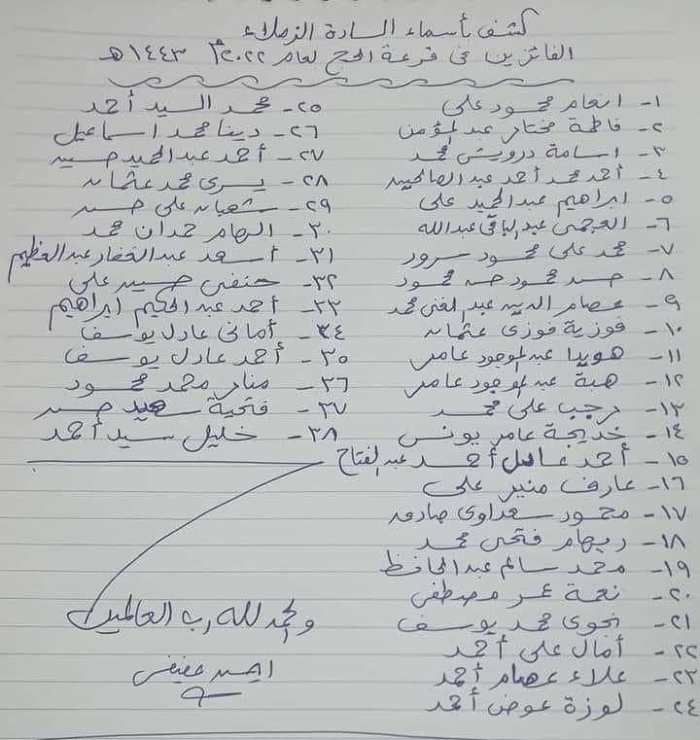 كشف بأسماء السادة الزملاء
الفائزين فى قرعة الحج لعام ٢٠٢٢م ١٤٤٣ هـ
١- انعام محمود على
٢- فاطمة مختار عبد المؤمن
٣- اسامة درويش محمد
٤- أحمد محمد أحمد عبد الصالحين
٥- ابراهيم عبد الحميد على
٦- العجمى عبد الباقى عبد الله
٧- محمد على محمود سرور
٨- حسن محمود حسن محمود
٩- عصام الدين عبد الغنى محمد
١٠- فوزية فوزى عثمان
١١- هويدا عبد الموجود عامر
١٢- هبة عبد الموجود عامر
١٣- رجب على محمد
١٤- خديجة عامر يونس
١٥- أحمد عادل أحمد عبد الفتاح
١٦- عارف منير على
١٧- محمود سعداوى صادق
١٨- ريهام فتحى محمد
١٩- محمد سالم عبد الحافظ
٢٠- نعمة عمر مصطفى
٢١- نجوى محمد يوسف
٢٢- أمال على أحمد
٢٣- علاء عصام أحمد
٢٤- لوزة عوض أحمد
٢٥- محمد السيد أحمد
٢٦- دينا محمد اسماعيل
٢٧- أحمد عبد الحميد حسين
٢٨- يسرى محمد عثمان
٢٩- شعبان على حسن
٣٠- الهام حمدان محمد
٣١- أسعد عبد الغفار عبد العظيم
٣٢- حنفى حسين على
٣٣- أحمد عبد الحكيم ابراهيم
٣٤- أمانى عادل يوسف
٣٥- أحمد عادل يوسف
٣٦- منار محمد محمود
٣٧- فتحية سعيد حسن
٣٨- خليل سيد أحمد
والحمد لله رب العالمين